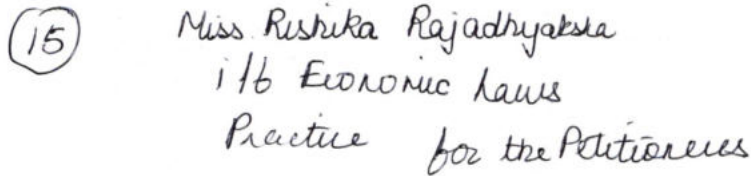 15 Miss Rishika Rajadhyaksha
i/b Economic Laws
Practice for the Petitioners